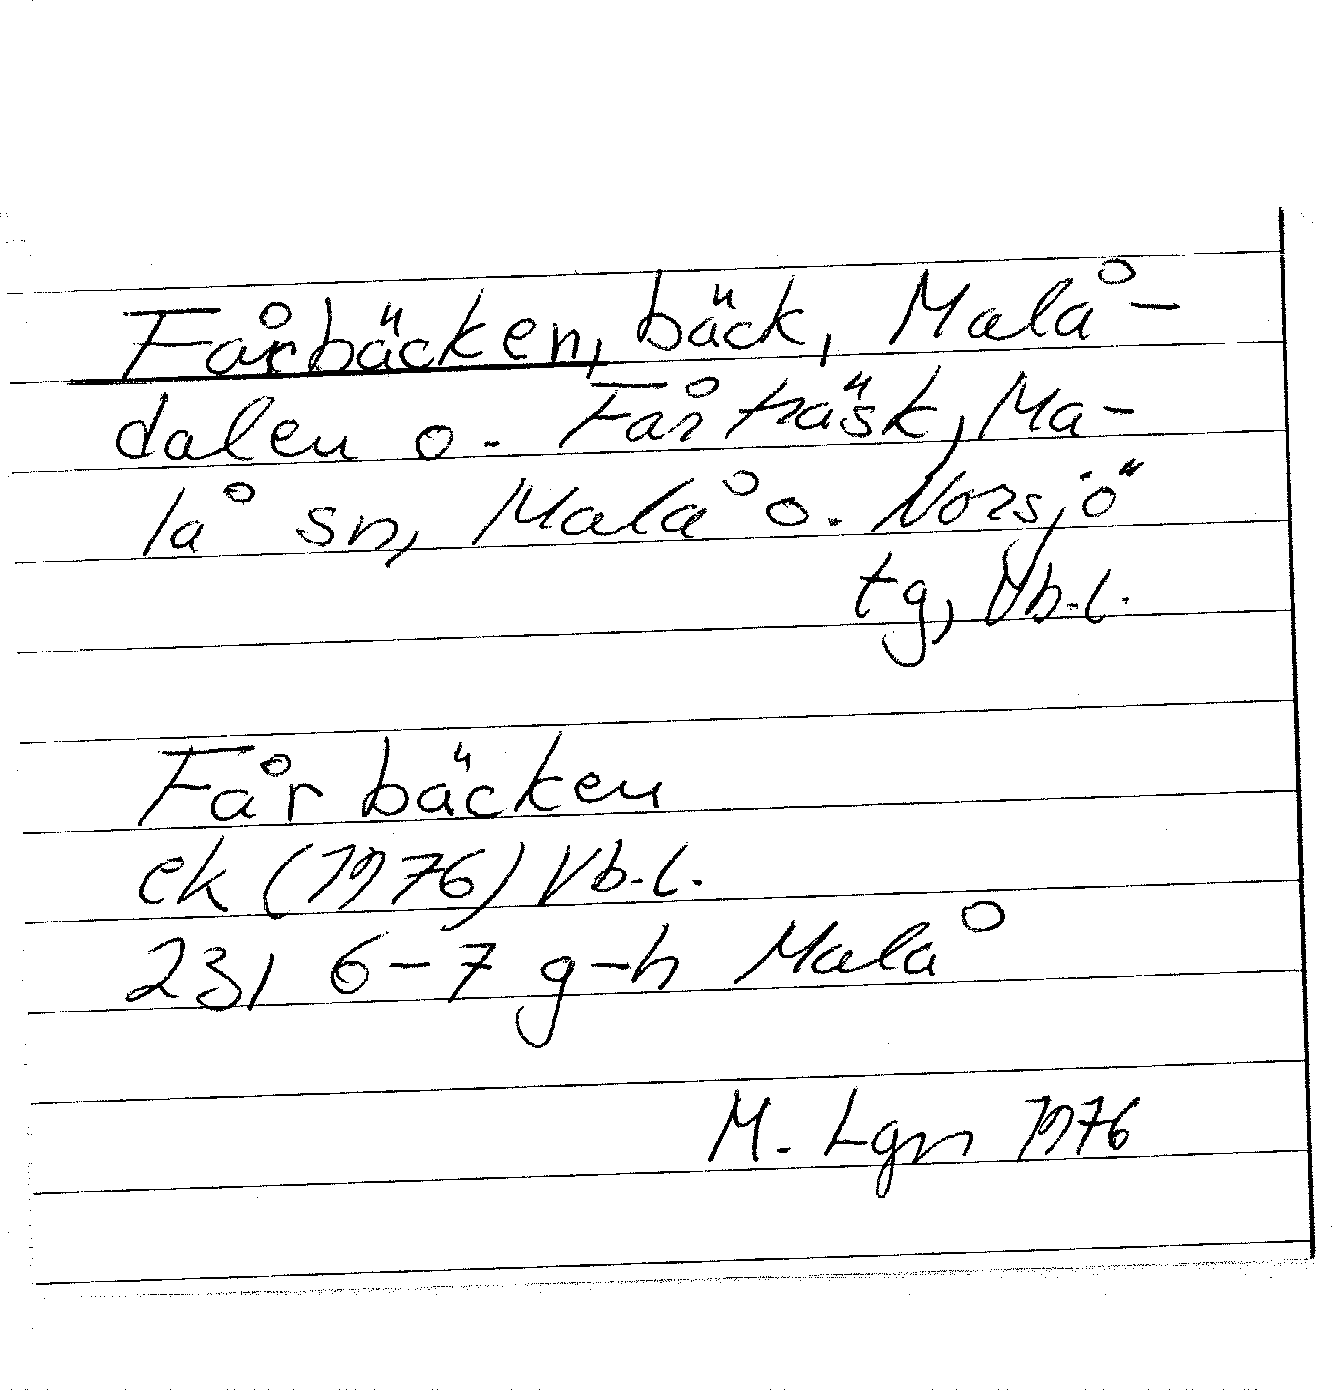 Fårbäcken, bäck, Malå-
dalen o. Fårträsk, Ma-
lå sn, Malå o. Norsjö
tg, Vb.l.
Fårbäcken
ek (1976) Vb.l.
23I 6-7 g-h Malå
M. Lgn 1976